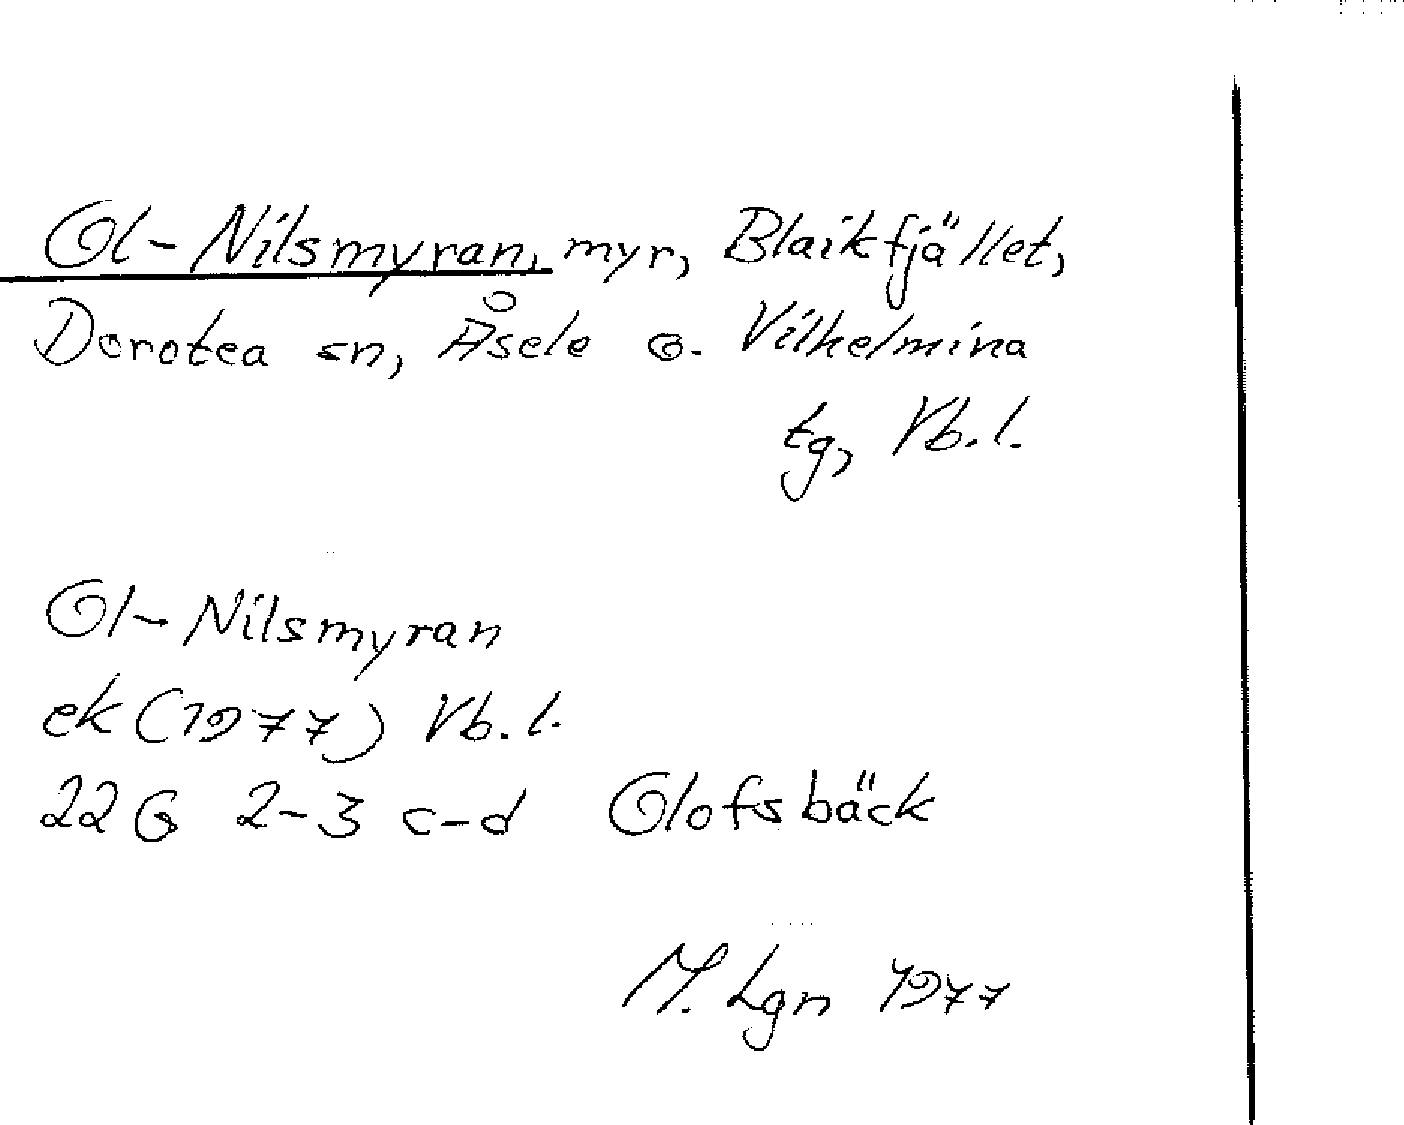 Ol-Nilsmyran, myr, Blaikfjället,
Dorotea sn, Åsele o. Vilhelmina
tg, Vb.l.
Ol-Nilsmyran
ek (1977) Vb.l.
22G 2-3 c-d Olofsbäck
M. Lgn 1977